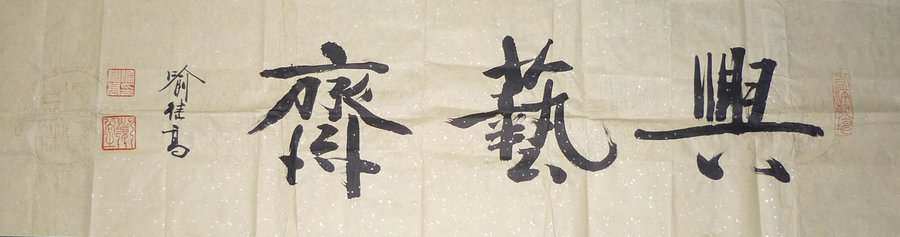 興藝齋
喻佳高